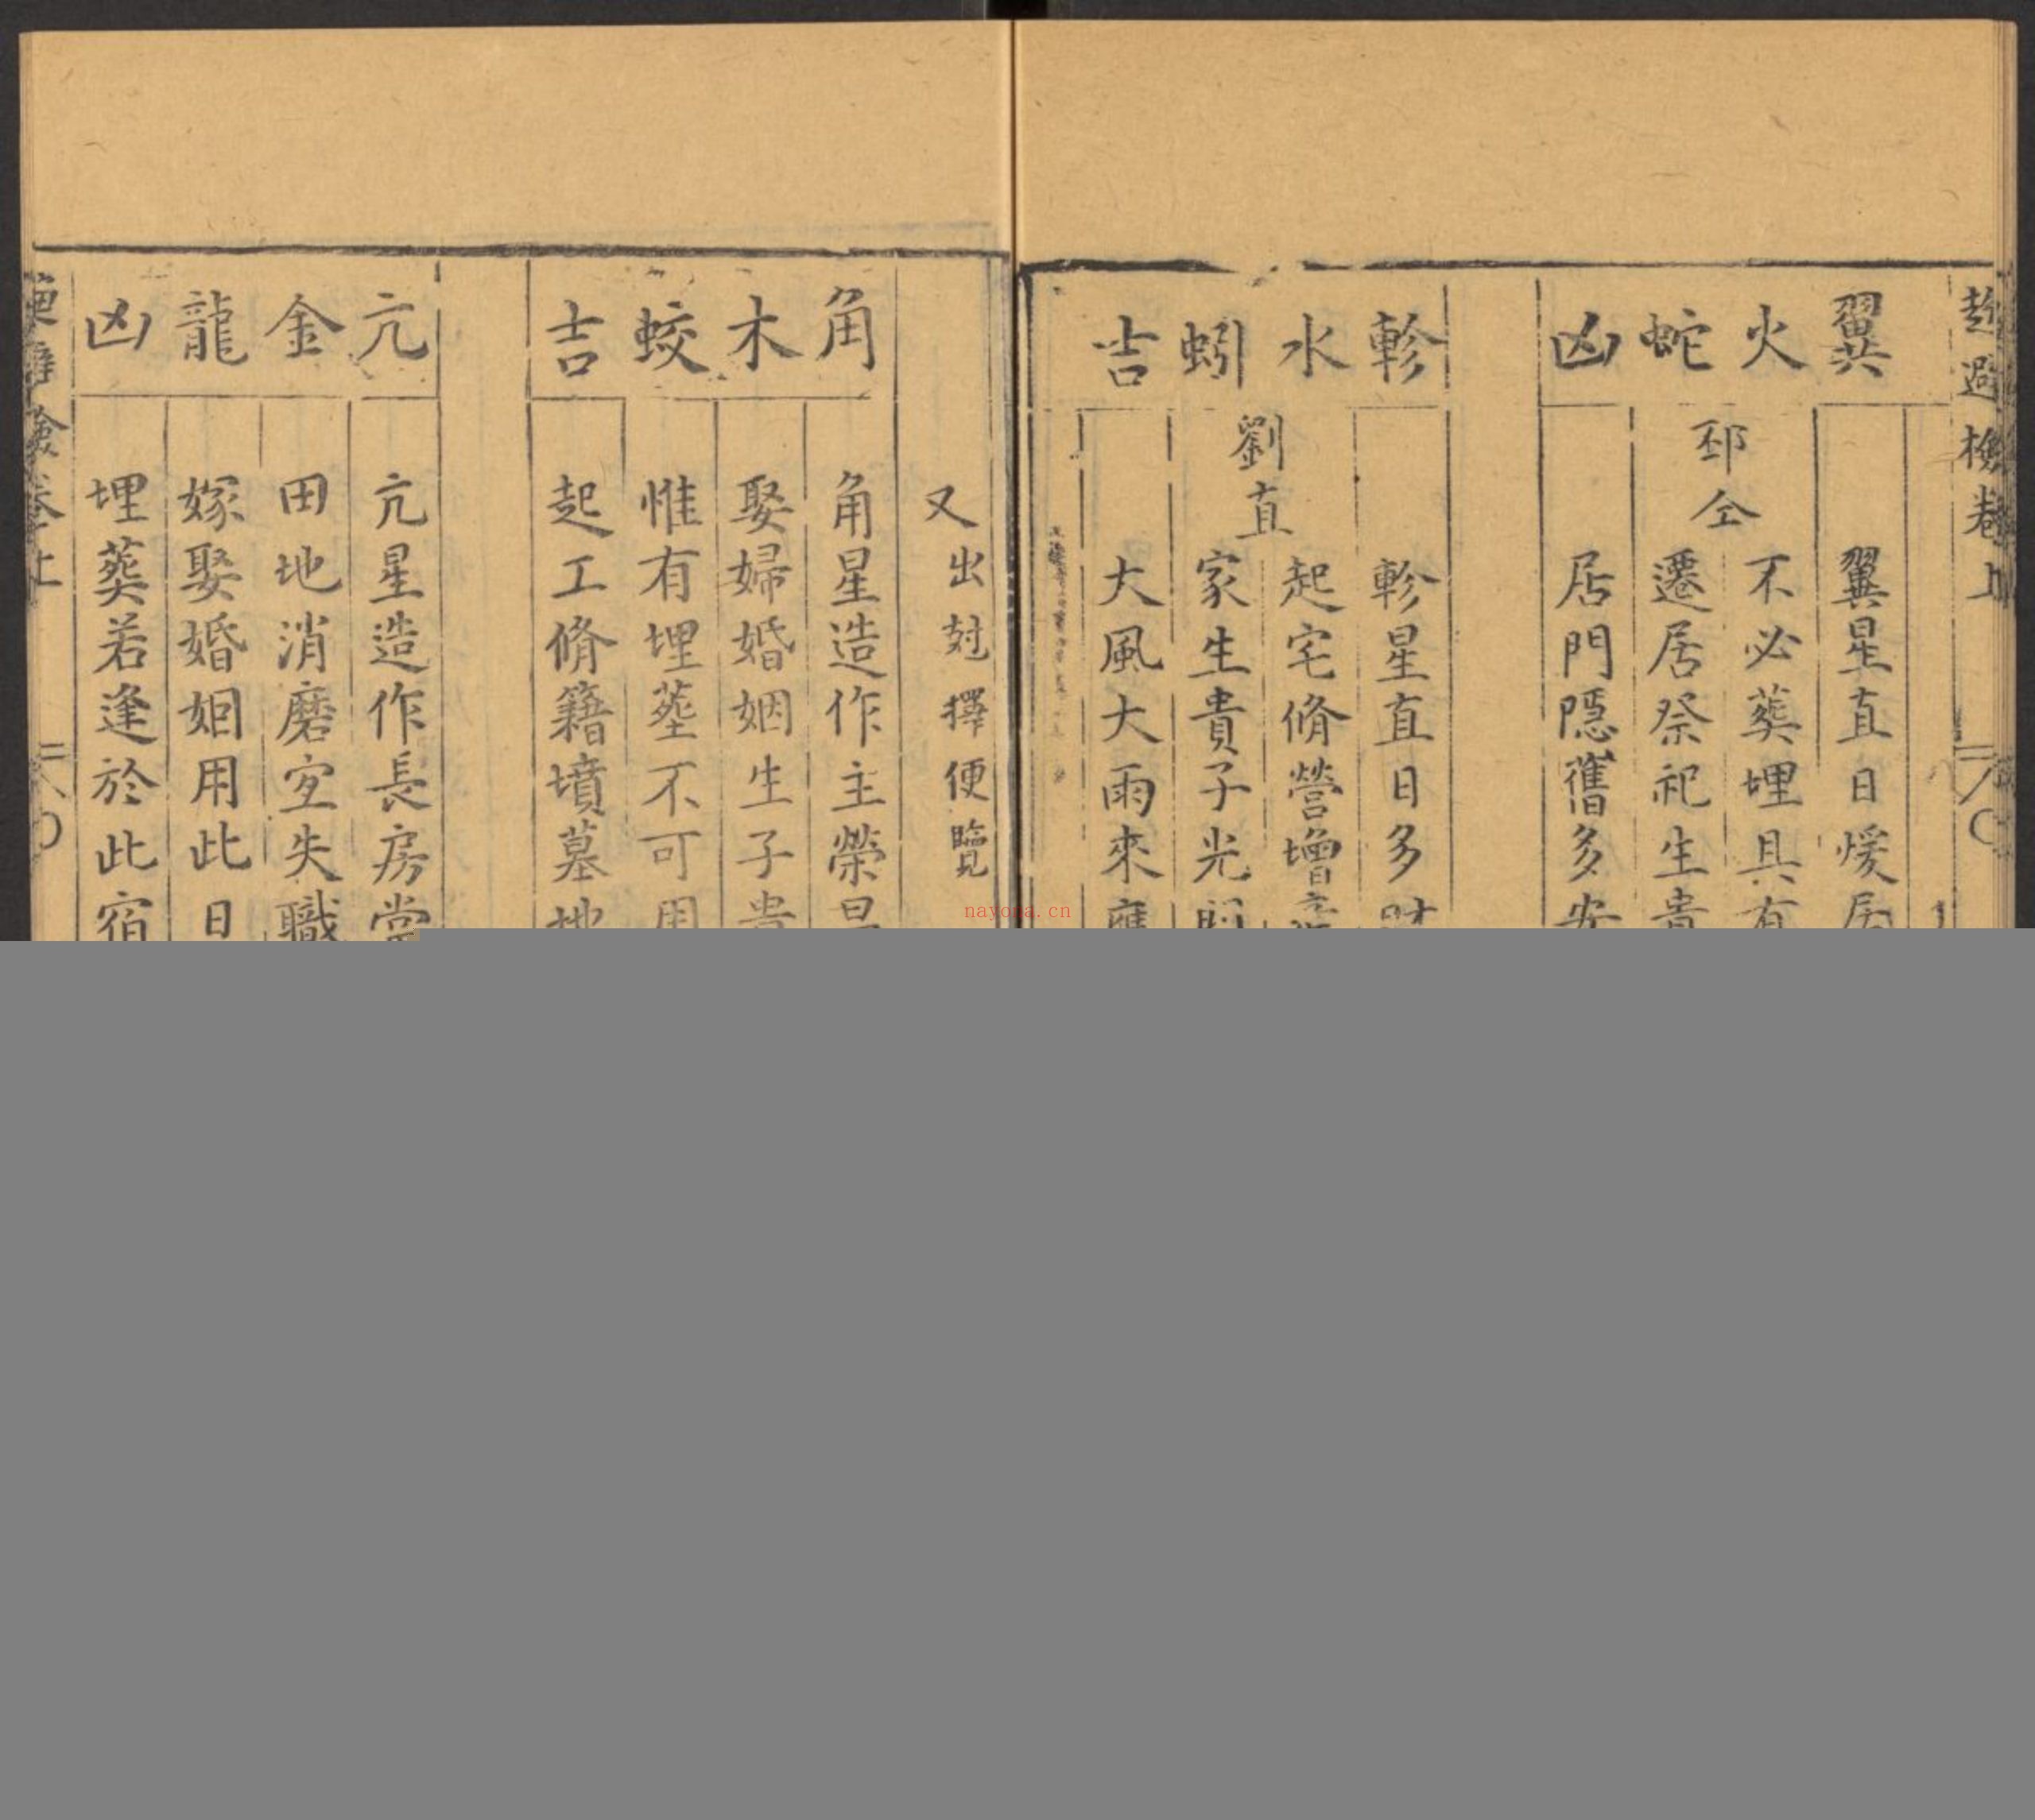 趋避檢卷上
翼火蛇凶
邳仝
翼星直日煖居
不必葬埋具有
遷居祭祀生貴
居門隱舊多安
軫水蚓吉
劉直
軫星直日多財
起宅脩營增
家生貴子光
大風大雨來應
又出尅擇便覽
角木蛟吉
角星造作主榮昌
娶婦婚姻生子貴
惟有埋塟不可用
起工脩籍墳墓地
亢金龍凶
亢星造作長房當
田地消磨宦失職
嫁娶婚姻用此日
埋葬若逢於此宿
nayona.cn